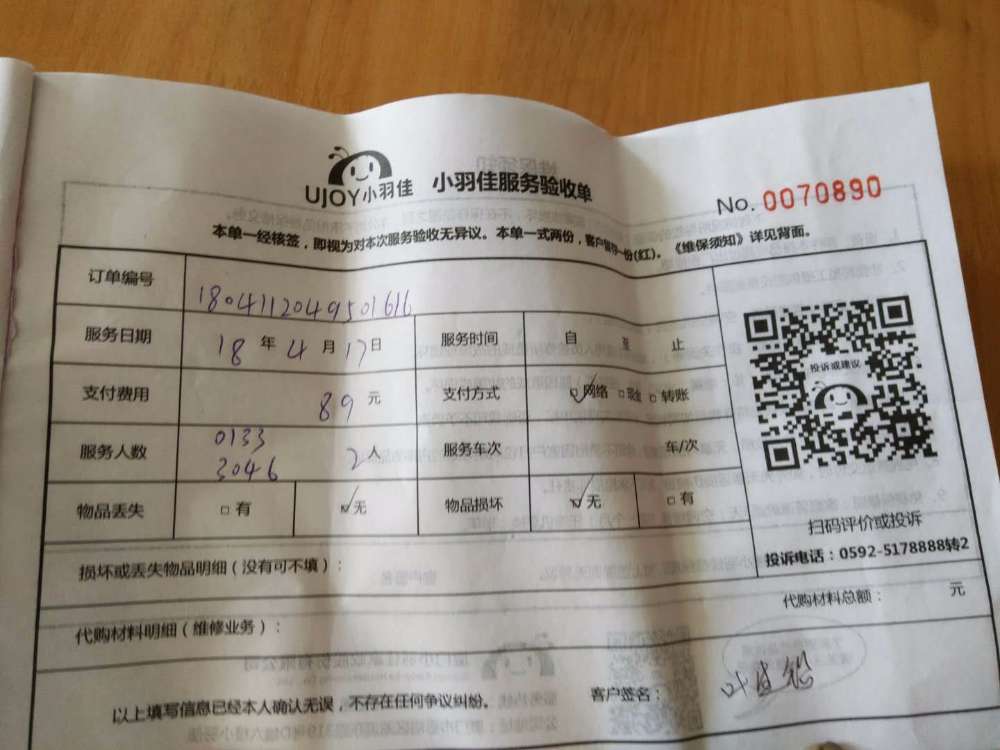 UJOY小羽佳 小羽佳服务验收单
No. 0070890
本单一经核签，即视为对本次服务验收无异议。本单一式两份，客户留存一份(红)。《维保须知》详见背面。
订单编号 1804112049501616
服务日期 18 年 4 月 17 日 服务时间 自 至 止
支付费用 89 元 支付方式 ☑网络 □现金 □转账
投诉或建议
服务人数 0133 3046 2人 服务车次 车/次
物品丢失 □有 ☑无 物品损坏 ☑无 □有
扫码评价或投诉
投诉电话：0592-5178888转2
损坏或丢失物品明细（没有可不填）：
代购材料明细（维修业务）： 代购材料总额： 元
以上填写信息已经本人确认无误，不存在任何争议纠纷。 客户签名：